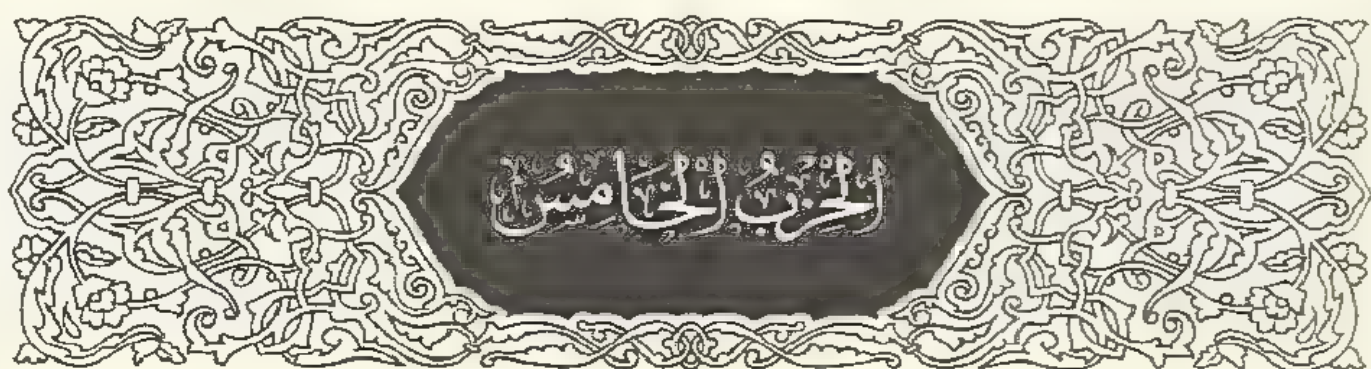 الحِزْبُ الْخَامِسُ